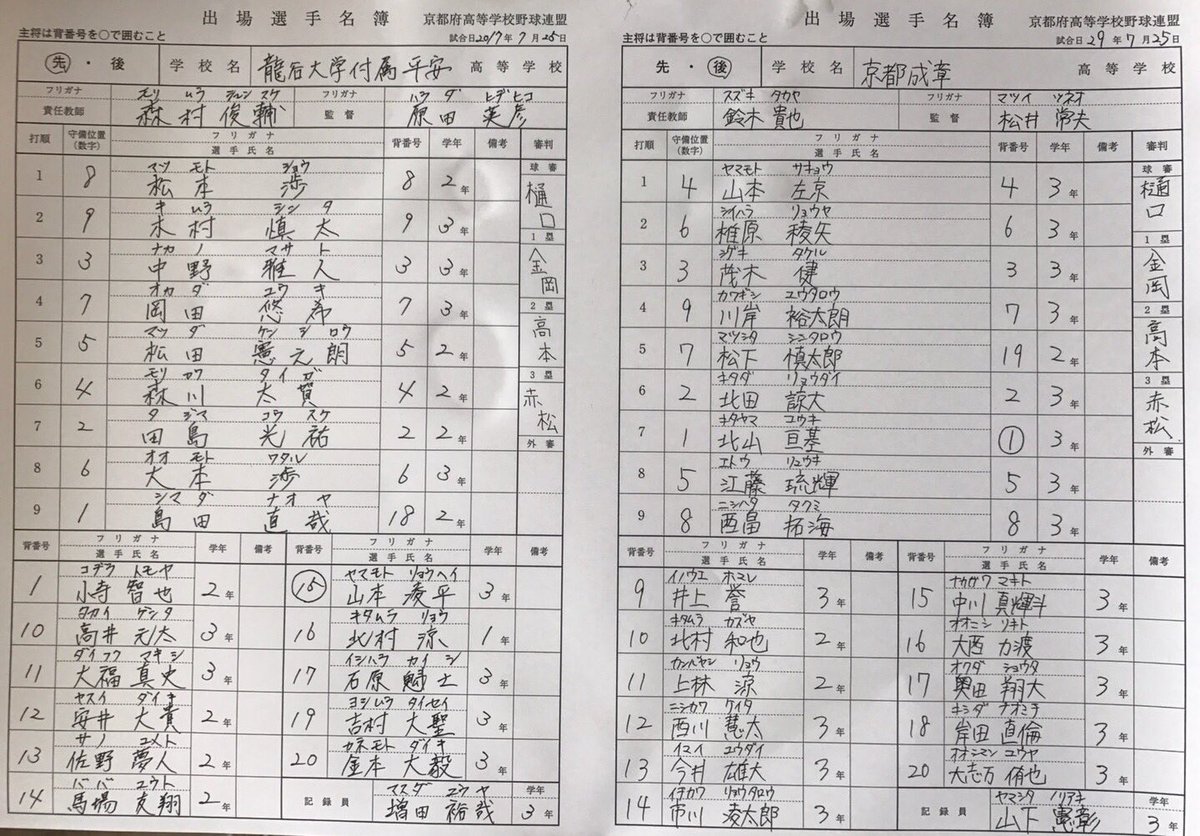 出場選手名簿 京都府高等学校野球連盟
主将は背番号を○で囲むこと 試合日2017年7月25日
先・後 学校名 龍谷大学付属平安 高等学校
フリガナ モリムラ シュンスケ フリガナ ハラダ ヒデヒコ
責任教師 森村俊輔 監督 原田英彦
打順 守備位置(数字) フリガナ 選手氏名 背番号 学年 備考 審判
マツモト ショウ 球審
1 8 松本 渉 8 2年 樋口
キムラ シンタ
2 9 木村 慎太 9 3年 1塁
ナカノ マサト
3 3 中野 雅人 3 3年 金岡
オカダ ユウキ 2塁
4 7 岡田 悠希 7 3年 高本
マツダ ケンシロウ
5 5 松田 憲之朗 5 2年 3塁
モリカワ タイガ
6 4 森川 太賀 4 2年 赤松
タジマ コウスケ
7 2 田島 光祐 2 2年 外審
オオモト ワタル
8 6 大本 渉 6 3年
シマダ ナオヤ
9 1 島田 直哉 18 2年
背番号 フリガナ 選手氏名 学年 備考 背番号 フリガナ 選手氏名 学年 備考
コデラ トモヤ ヤマモト リョウヘイ
1 小寺 智也 2年 15 山本 凌平 3年
タカイ ゲンタ キタムラ リョウ
10 高井 元太 3年 16 北村 涼 1年
ダイフク マキシ イシハラ カイシ
11 大福 真史 3年 17 石原 士 3年
ヤスイ ダイキ ヨシムラ タイセイ
12 安井 大貴 2年 19 吉村 大聖 3年
サノ ユメト カネモト ダイキ
13 佐野 夢人 2年 20 金本 大毅 3年
ババ ユウト マスダ ユウヤ 学年
14 馬場 友翔 2年 記録員 増田 裕哉 3年
出場選手名簿 京都府高等学校野球連盟
主将は背番号を○で囲むこと 試合日29年7月25日
先・後 学校名 京都成章 高等学校
フリガナ スズキ タカヤ フリガナ マツイ ツネオ
責任教師 鈴木貴也 監督 松井常夫
打順 守備位置(数字) フリガナ 選手氏名 背番号 学年 備考 審判
ヤマモト サキョウ 球審
1 4 山本 左京 4 3年 樋口
シイハラ リョウヤ
2 6 椎原 稜矢 6 3年 1塁
シゲキ タケル
3 3 茂木 健 3 3年 金岡
カワギシ ユウタロウ 2塁
4 9 川岸 裕太朗 7 3年 高本
マツシタ シンタロウ
5 7 松下 慎太郎 19 2年 3塁
キタダ リョウダイ
6 2 北田 諒大 2 3年 赤松
キタヤマ コウキ
7 1 北山 亘基 1 3年 外審
エトウ リュウキ
8 5 江藤 琉輝 5 3年
ニシハタ タクミ
9 8 西畠 拓海 8 3年
背番号 フリガナ 選手氏名 学年 備考 背番号 フリガナ 選手氏名 学年 備考
イノウエ ホマレ ナカガワ マキト
9 井上 誉 3年 15 中川 真輝斗 3年
キタムラ カズヤ オオニシ リキト
10 北村 和也 2年 16 大西 力渡 3年
カンバヤシ リョウ オクダ ショウタ
11 上林 涼 2年 17 奥田 翔大 3年
ニシカワ ケイタ キシダ ナオミチ
12 西川 慧太 3年 18 岸田 直倫 3年
イマイ ユウダイ オオシマン ユウヤ
13 今井 雄大 3年 20 大志万 侑也 3年
イチカワ リョウタロウ ヤマシタ ノリアキ 学年
14 市川 凌太郎 3年 記録員 山下 憲彰 3年